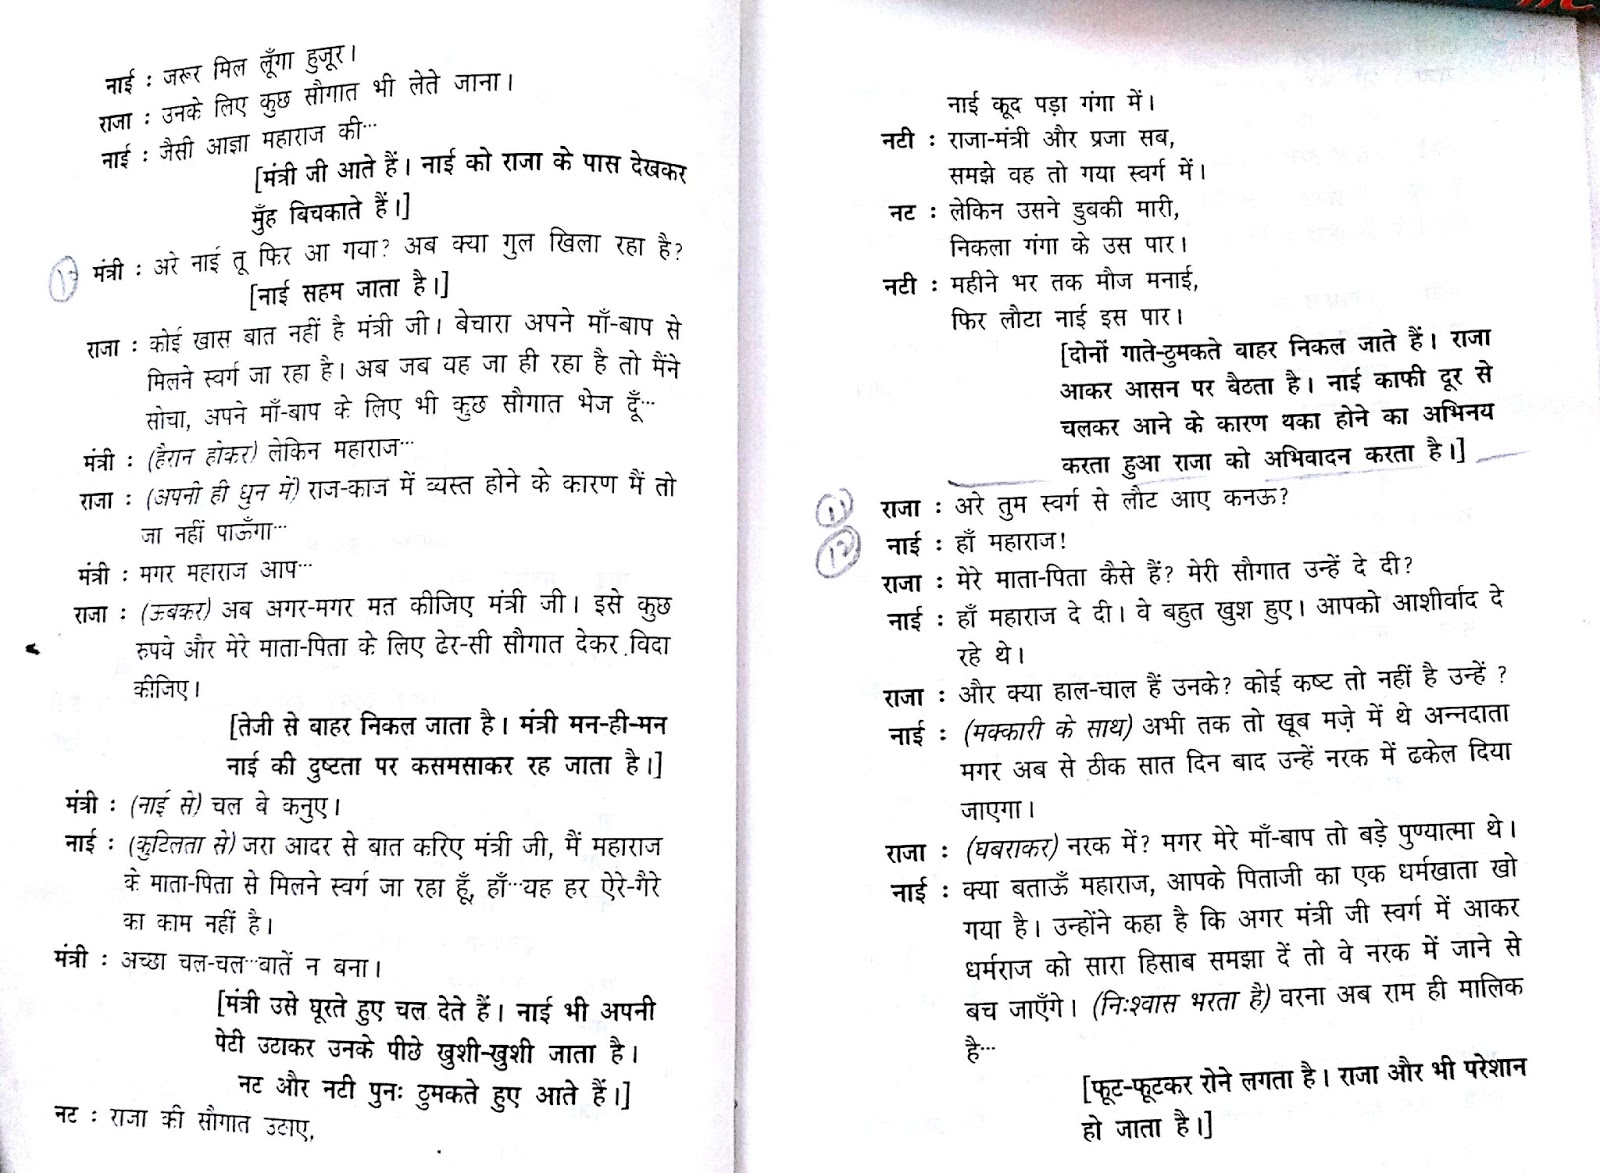 नाई : जरूर मिल लूँगा हुजूर।
राजा : उनके लिए कुछ सौगात भी लेते जाना।
नाई : जैसी आज्ञा महाराज की···
[मंत्री जी आते हैं। नाई को राजा के पास देखकर
मुँह बिचकाते हैं।]
मंत्री : अरे नाई तू फिर आ गया? अब क्या गुल खिला रहा है?
[नाई सहम जाता है।]
राजा : कोई खास बात नहीं है मंत्री जी। बेचारा अपने माँ-बाप से
मिलने स्वर्ग जा रहा है। अब जब यह जा ही रहा है तो मैंने
सोचा, अपने माँ-बाप के लिए भी कुछ सौगात भेज दूँ···
मंत्री : (हैरान होकर) लेकिन महाराज···
राजा : (अपनी ही धुन में) राज-काज में व्यस्त होने के कारण मैं तो
जा नहीं पाऊँगा···
मंत्री : मगर महाराज आप···
राजा : (ऊबकर) अब अगर-मगर मत कीजिए मंत्री जी। इसे कुछ
रुपये और मेरे माता-पिता के लिए ढेर-सी सौगात देकर विदा
कीजिए।
[तेजी से बाहर निकल जाता है। मंत्री मन-ही-मन
नाई की दुष्टता पर कसमसाकर रह जाता है।]
मंत्री : (नाई से) चल बे कनुए।
नाई : (कुटिलता से) जरा आदर से बात करिए मंत्री जी, मैं महाराज
के माता-पिता से मिलने स्वर्ग जा रहा हूँ, हाँ···यह हर ऐरे-गैरे
का काम नहीं है।
मंत्री : अच्छा चल-चल···बातें न बना।
[मंत्री उसे घूरते हुए चल देते हैं। नाई भी अपनी
पेटी उठाकर उनके पीछे खुशी-खुशी जाता है।
नट और नटी पुनः ठुमकते हुए आते हैं।]
नट : राजा की सौगात उठाए,
नाई कूद पड़ा गंगा में।
नटी : राजा-मंत्री और प्रजा सब,
समझे वह तो गया स्वर्ग में।
नट : लेकिन उसने डुबकी मारी,
निकला गंगा के उस पार।
नटी : महीने भर तक मौज मनाई,
फिर लौटा नाई इस पार।
[दोनों गाते-ठुमकते बाहर निकल जाते हैं। राजा
आकर आसन पर बैठता है। नाई काफी दूर से
चलकर आने के कारण थका होने का अभिनय
करता हुआ राजा को अभिवादन करता है।]
11 राजा : अरे तुम स्वर्ग से लौट आए कनऊ?
12 नाई : हाँ महाराज!
राजा : मेरे माता-पिता कैसे हैं? मेरी सौगात उन्हें दे दी?
नाई : हाँ महाराज दे दी। वे बहुत खुश हुए। आपको आशीर्वाद दे
रहे थे।
राजा : और क्या हाल-चाल हैं उनके? कोई कष्ट तो नहीं है उन्हें ?
नाई : (मक्कारी के साथ) अभी तक तो खूब मज़े में थे अन्नदाता
मगर अब से ठीक सात दिन बाद उन्हें नरक में ढकेल दिया
जाएगा।
राजा : (घबराकर) नरक में? मगर मेरे माँ-बाप तो बड़े पुण्यात्मा थे।
नाई : क्या बताऊँ महाराज, आपके पिताजी का एक धर्मखाता खो
गया है। उन्होंने कहा है कि अगर मंत्री जी स्वर्ग में आकर
धर्मराज को सारा हिसाब समझा दें तो वे नरक में जाने से
बच जाएँगे। (निःश्वास भरता है) वरना अब राम ही मालिक
है···
[फूट-फूटकर रोने लगता है। राजा और भी परेशान
हो जाता है।]